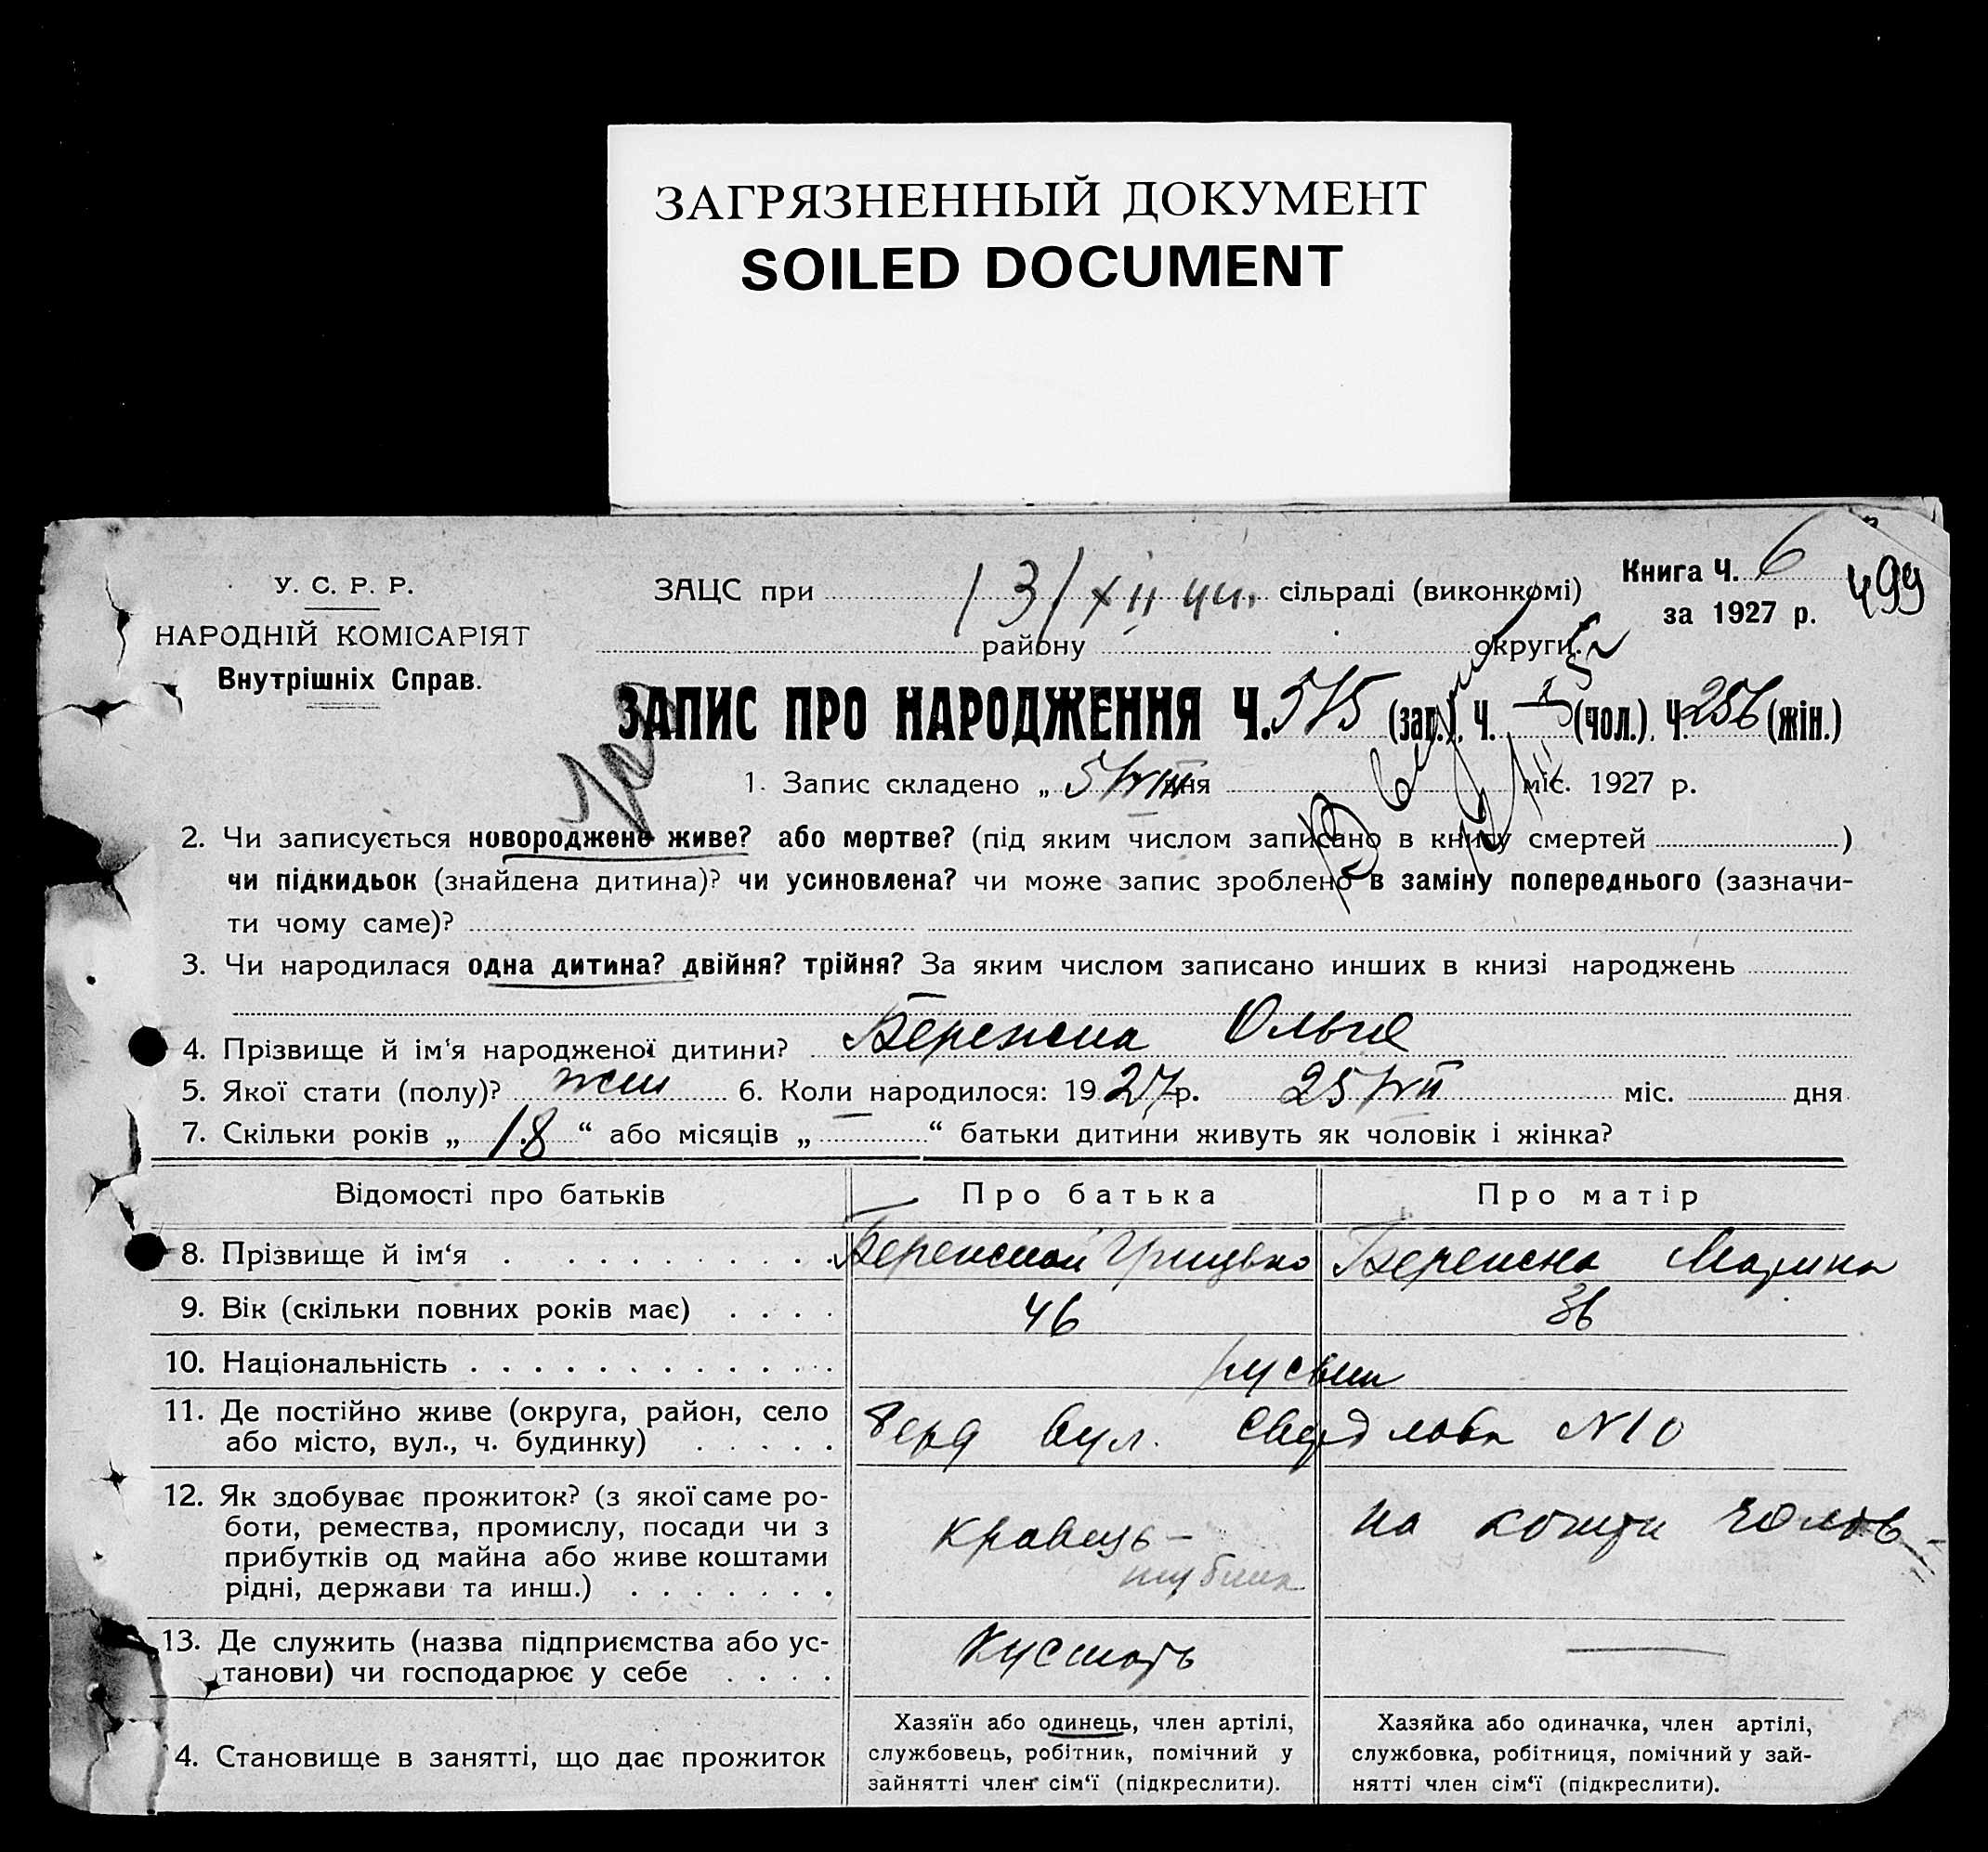 ЗАГРЯЗНЕННЫЙ ДОКУМЕНТ
SOILED DOCUMENT
Книга Ч. 6
499
У. С. Р. Р.
ЗАЦС при сільраді (виконкомі)
за 1927 р.
НАРОДНІЙ КОМІСАРІЯТ
району округи
Внутрішніх Справ.
ЗАПИС ПРО НАРОДЖЕННЯ Ч. 515 (заг.), Ч. — (чол.), Ч. 256 (жін.)
1. Запис складено „ 5/VIII дня міс. 1927 р.
2. Чи записується новороджене живе? або мертве? (під яким числом записано в книгу смертей )
чи підкидьок (знайдена дитина)? чи усиновлена? чи може запис зроблено в заміну попереднього (зазначи-
ти чому саме)?
3. Чи народилася одна дитина? двійня? трійня? За яким числом записано инших в книзі народжень
4. Прізвище й ім'я народженої дитини? Бережна Ольга
5. Якої стати (полу)? жін 6. Коли народилося: 1927 р. 25/VII міс. дня
7. Скільки років „ 18 “ або місяців „ — “ батьки дитини живуть як чоловік і жінка?
Відомості про батьків Про батька Про матір
8. Прізвище й ім‘я Бережной Грицько Бережна Марина
9. Вік (скільки повних років має) 46 36
10. Національність
11. Де постійно живе (округа, район, село
або місто, вул., ч. будинку) Берд вул. Свердлова N 10
12. Як здобуває прожиток? (з якої саме ро-
боти, ремества, промислу, посади чи з
прибутків од майна або живе коштами
рідні, держави та инш.)
кравець —
на кошти чолов
13. Де служить (назва підприємства або ус-
танови) чи господарює у себе Кустарь —
4. Становище в занятті, що дає прожиток
Хазяїн або одинець, член артілі,
службовець, робітник, помічний у
зайнятті член сім‘ї (підкреслити).
Хазяйка або одиначка, член артілі,
службовка, робітниця, помічний у зай-
нятті член сім‘ї (підкреслити).